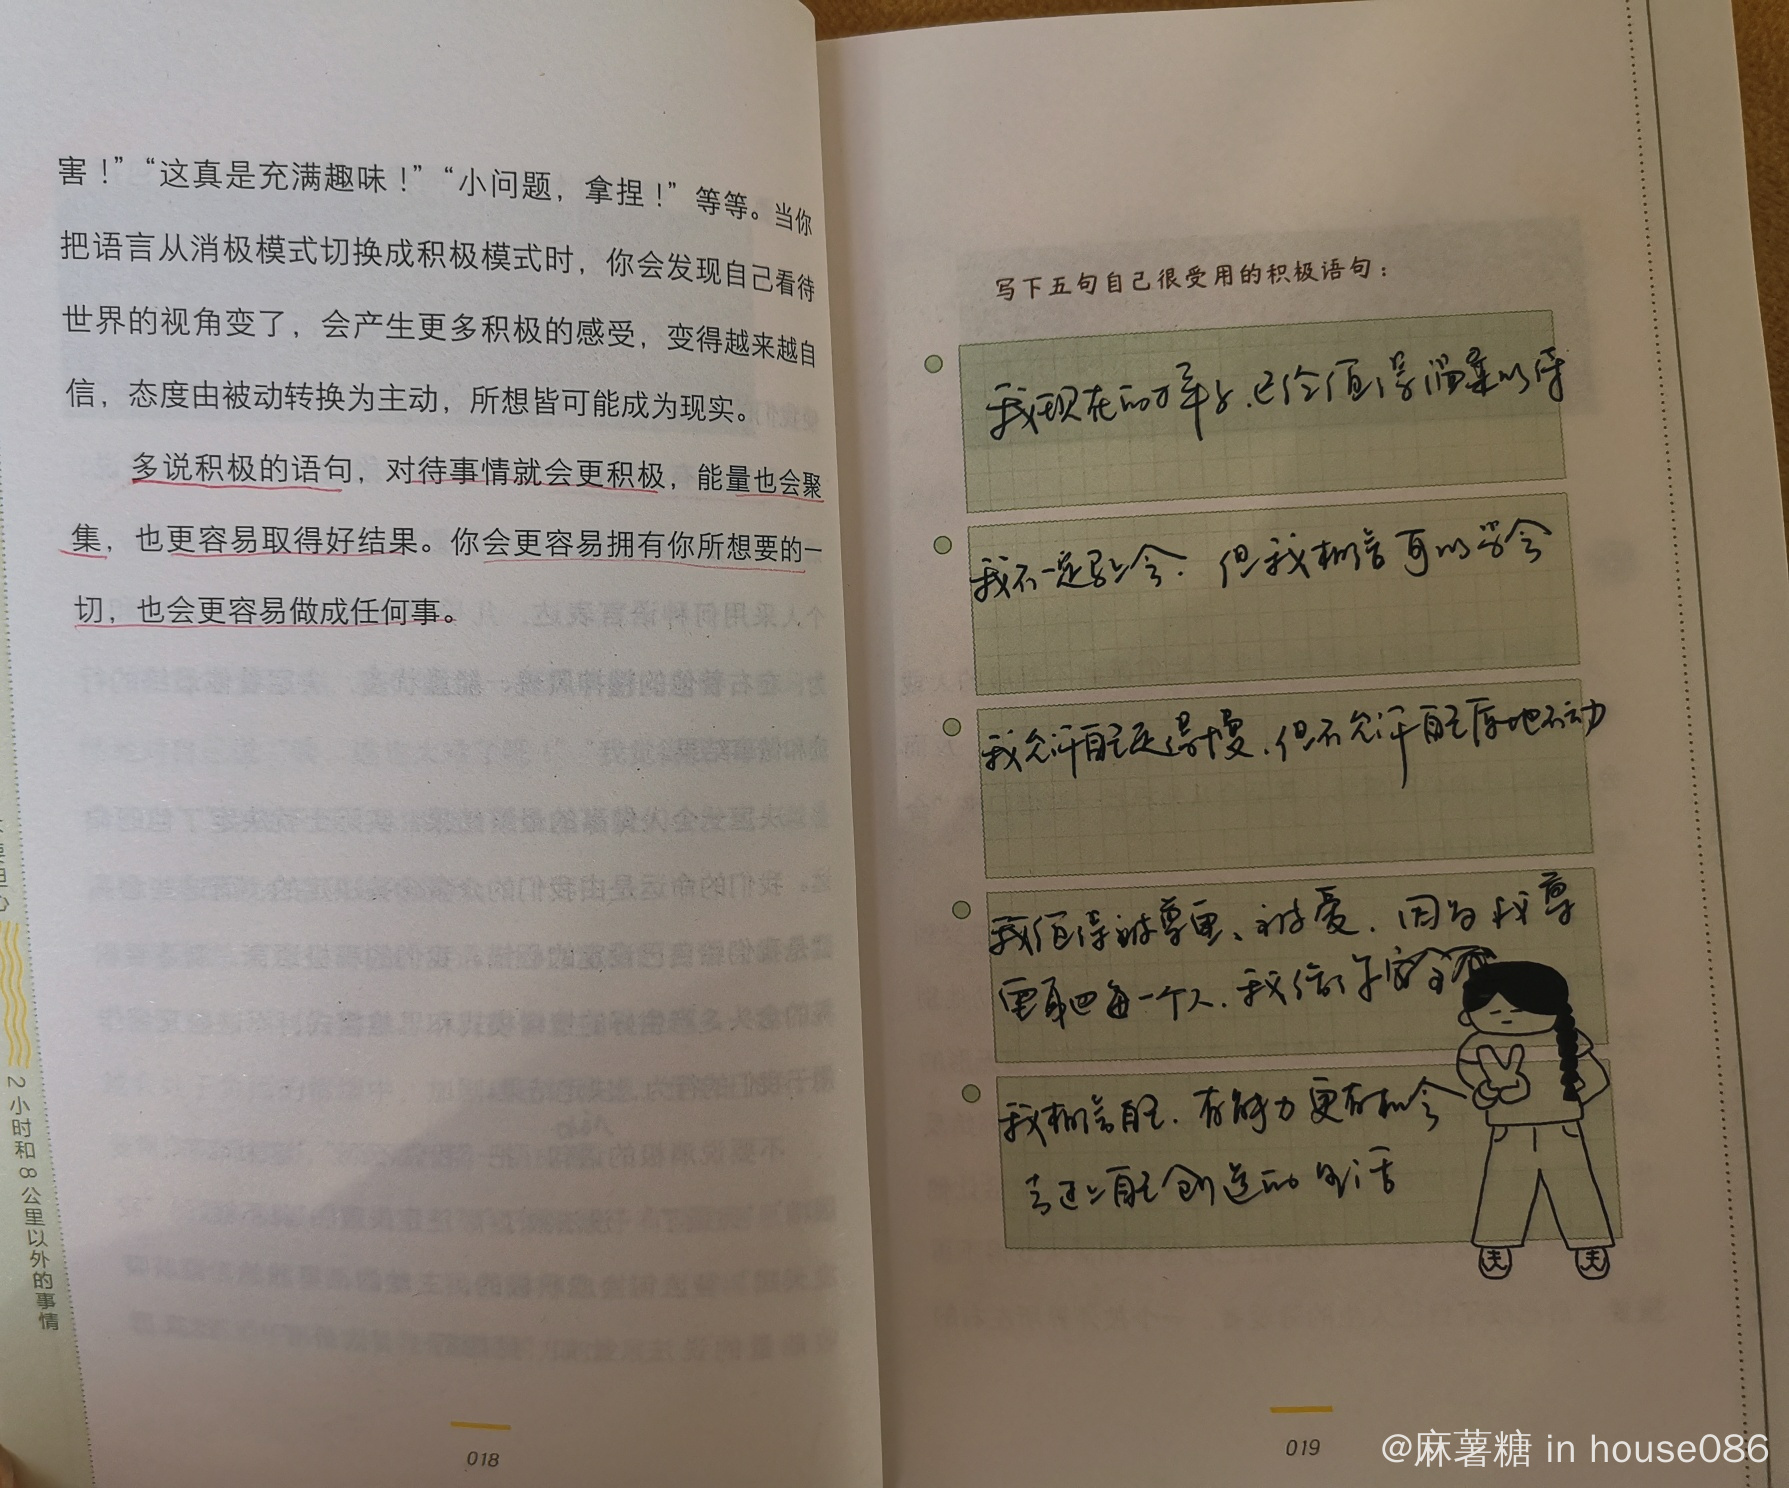 害！”“这真是充满趣味！”“小问题，拿捏！”等等。当你
把语言从消极模式切换成积极模式时，你会发现自己看待
世界的视角变了，会产生更多积极的感受，变得越来越自
信，态度由被动转换为主动，所想皆可能成为现实。
多说积极的语句，对待事情就会更积极，能量也会聚
集，也更容易取得好结果。你会更容易拥有你所想要的一
切，也会更容易做成任何事。
2小时和8公里以外的事情
018
写下五句自己很受用的积极语句：
我现在的 已经值得温柔以待
我不一定马上会．但我相信可以学会
我允许自己走得慢．但不允许自己原地不动
我值得被尊重、被爱．因为我尊
重身边每一个人．我
我相信自己．有能力更有机会
去过上自己创造的生活
019
@麻薯糖 in house086